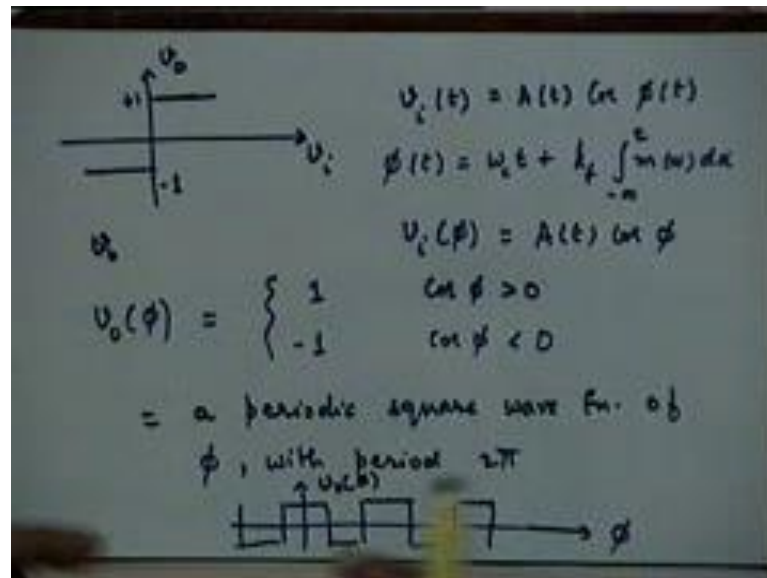 v₀
+1
vᵢ
-1
vᵢ(t) = A(t) Cos φ(t)
φ(t) = ω_c t + k_f ∫_{-∞}^{t} m(α) dα
vᵢ(φ) = A(t) cos φ
v₀
v₀(φ) = { 1 Cos φ > 0
-1 Cos φ < 0
= a periodic square wave fn. of
φ, with period 2π
v₀(φ)
φ